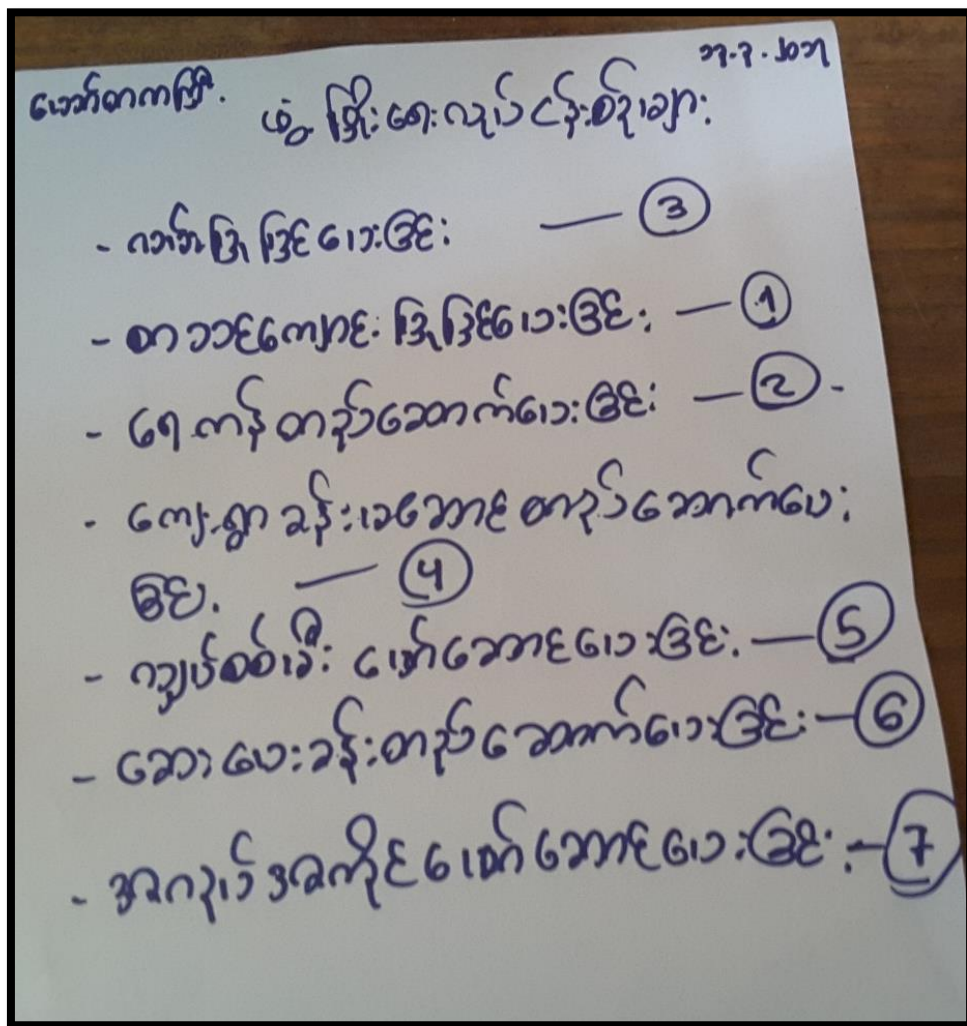 ဖွံ့ဖြိုးရေးလုပ်ငန်းစဉ်များ
- လမ်းပြုပြင်ပေးခြင်း — 3
- စာသင်ကျောင်းပြုပြင်ပေးခြင်း — 1
- ရေကန်တည်ဆောက်ပေးခြင်း — 2 -
- ကျေးရွာခန်းမဆောင်တည်ဆောက်ပေး
ခြင်း — 4
- လျှပ်စစ်မီးဖော်ဆောင်ပေးခြင်း — 5
- ဆေးပေးခန်းတည်ဆောက်ပေးခြင်း — 6
- အလုပ်အကိုင်ဖော်ဆောင်ပေးခြင်း — 7